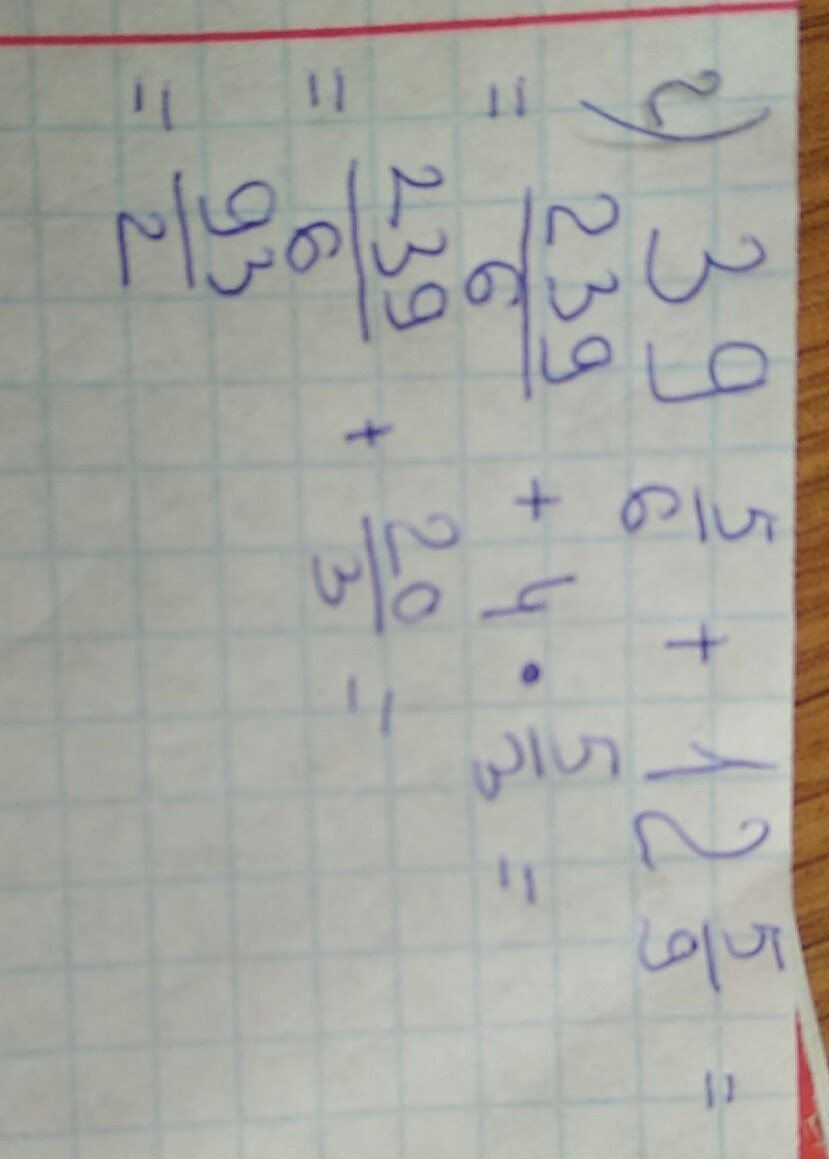 2) 39 5/6 + 12 5/9 =
= 239/6 + 4 · 5/3 =
= 239/6 + 20/3 =
= 93/2